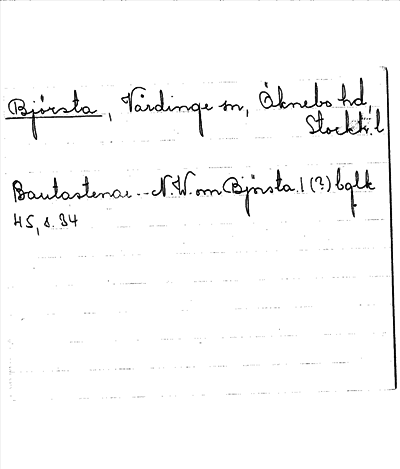 Bjórsta, Vårdinge sn, Öknebo hd,
Stockh. l
Bautastenar -- N.W. om Bjórsta. I (?) bglk
45, s. 34